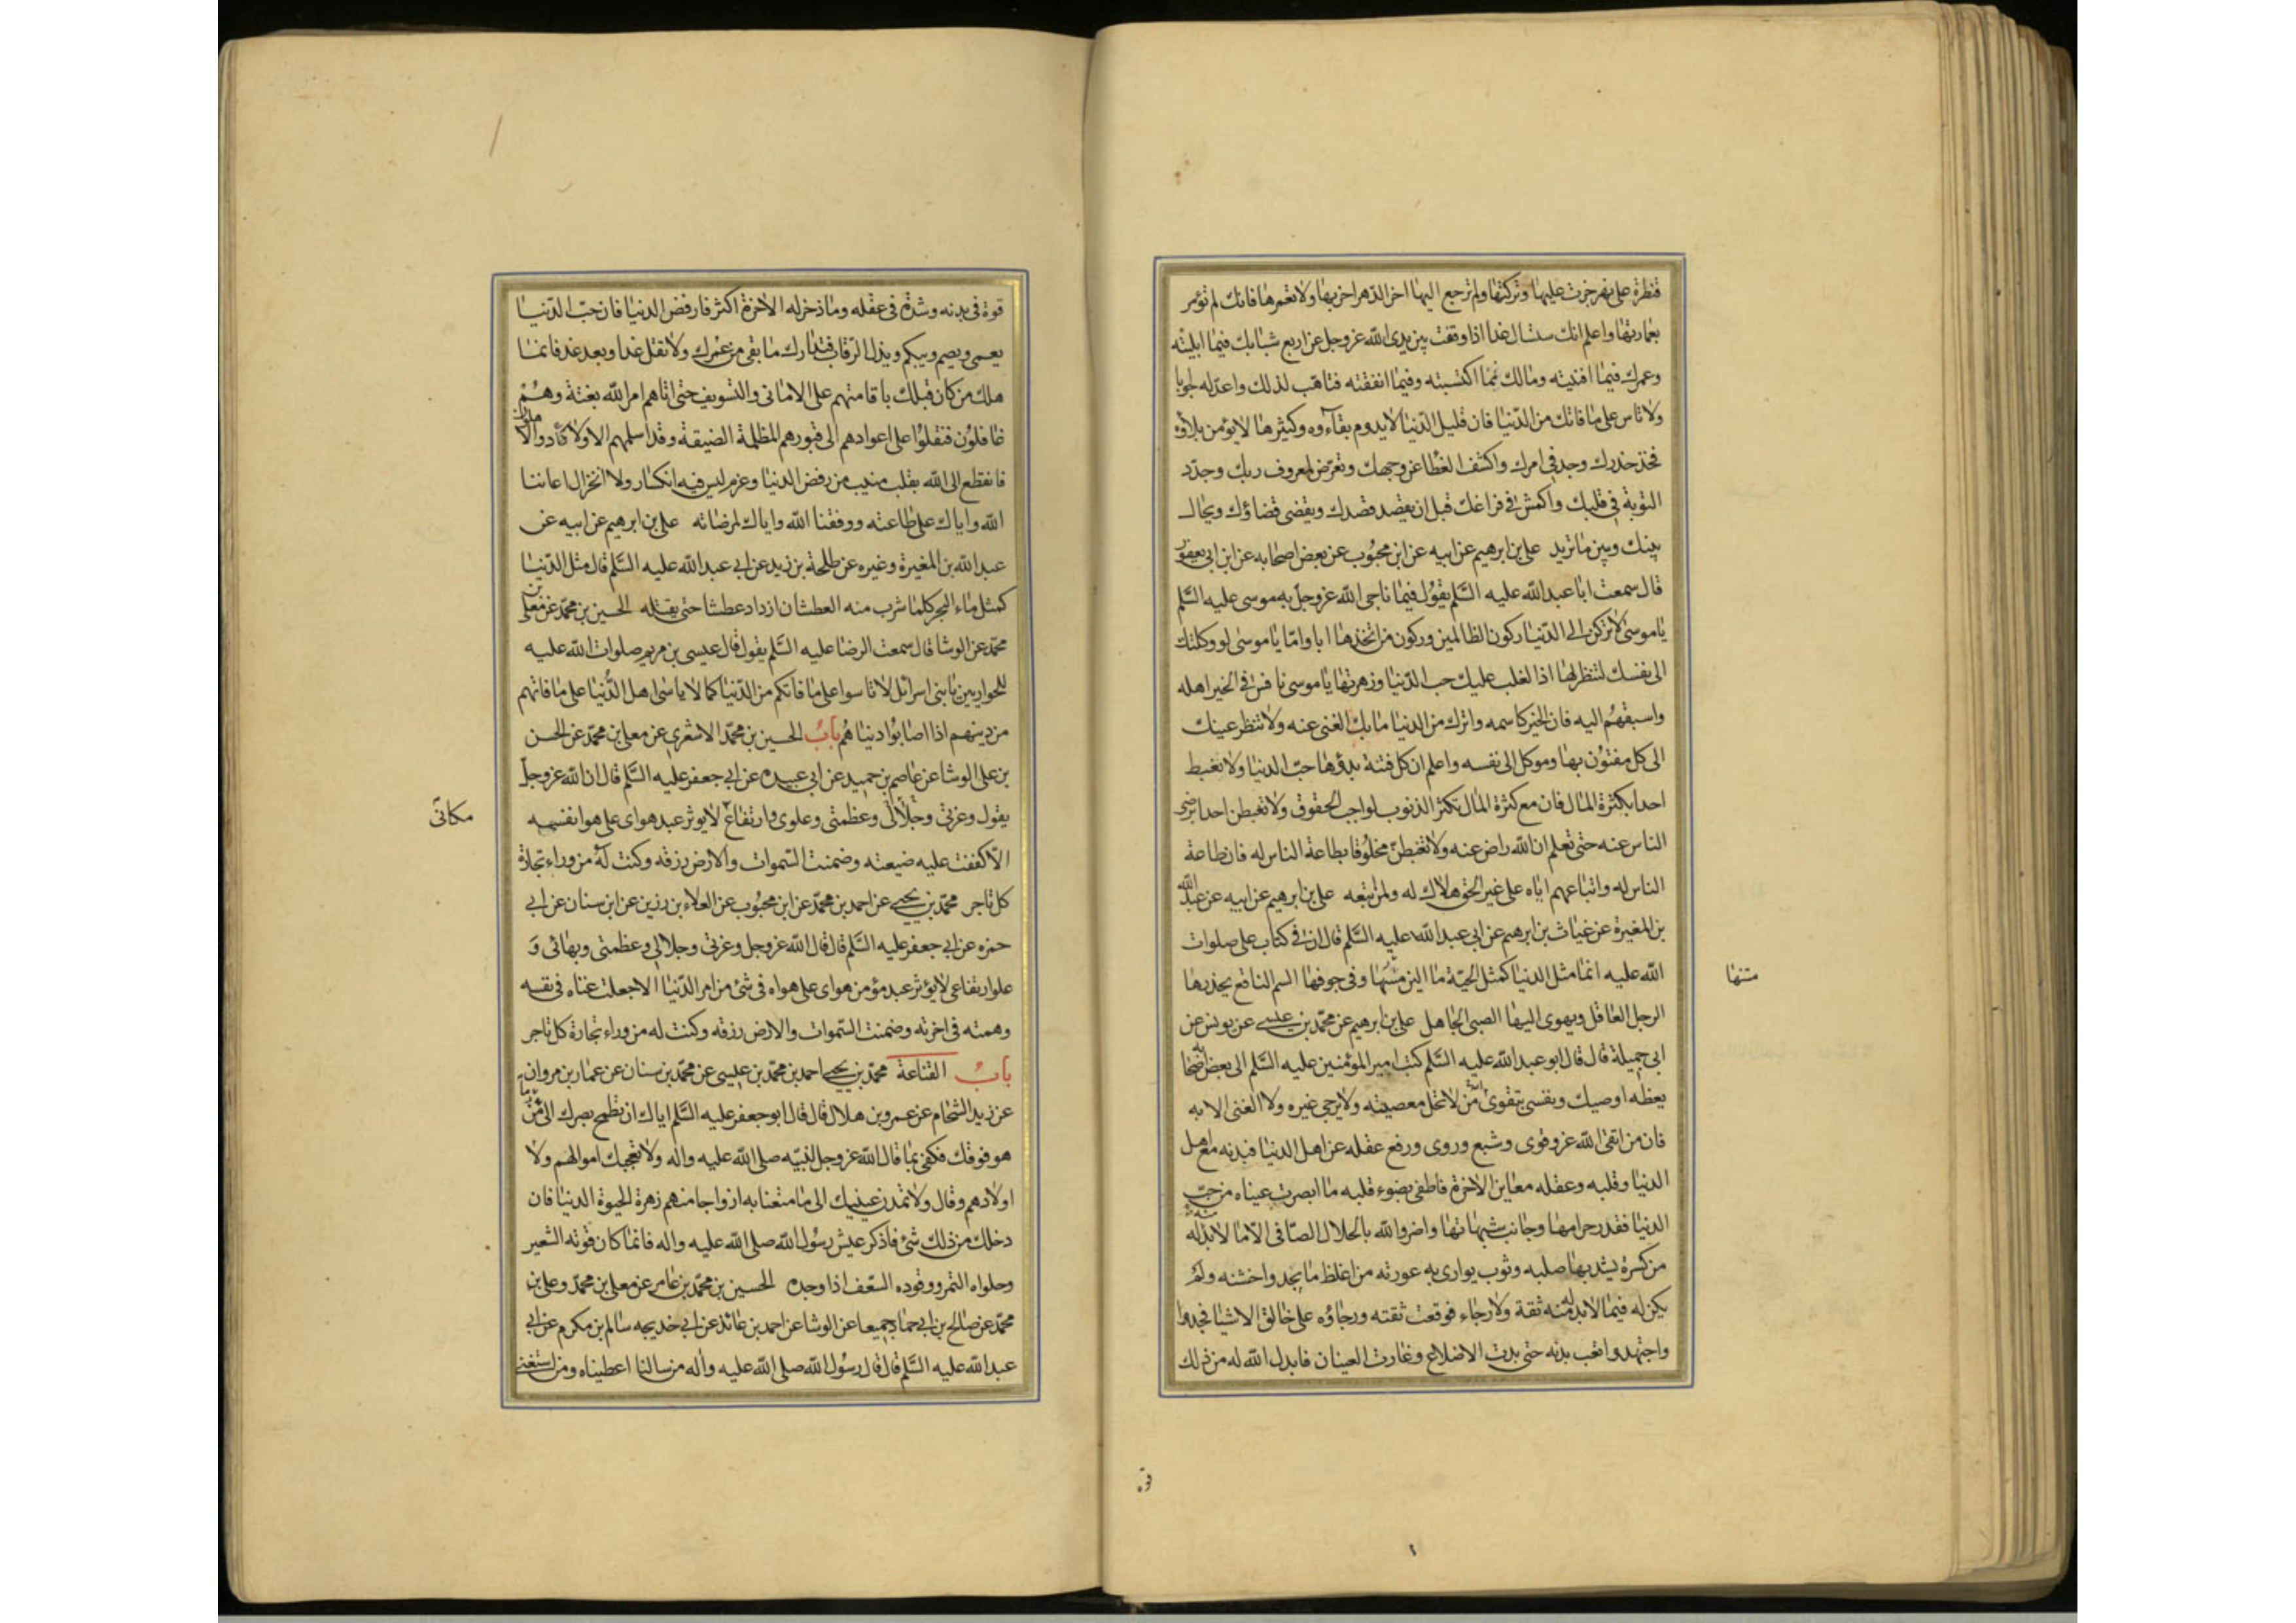 قنطرة على نهر جزت عليها وتركتها ولم ترجع اليها اخر الدهر اخربها ولا تعمرها فانك لم تؤمر
بعمارتها واعلم انك ستسال غدا اذا وقفت بين يدى الله عز وجل عن اربع شبابك فيما ابليته
وعمرك فيما افنيته ومالك مما اكتسبته وفيما انفقته فتاهب لذلك واعد له جوابا
ولا تاس على ما فاتك من الدنيا فان قليل الدنيا لا يدوم بقاءوه وكثيرها لا يؤمن بلاؤه
فخذ حذرك وجد فى امرك واكشف الغطا عن وجهك وتعرض لمعروف ربك وجدد
التوبة فى قلبك واكمش فى فراغك قبل ان يقصد قصدك ويقضى قضاؤك ويحال
بينك وبين ما تريد على بن ابرهيم عن ابيه عن ابن محبوب عن بعض اصحابه عن ابن ابى يعفور
قال سمعت ابا عبد الله عليه السلم يقول فيما ناجى الله عز وجل به موسى عليه السلم
يا موسى لا تركن الى الدنيا ركون الظالمين وركون من اتخذها ابا واما يا موسى لو وكلتك
الى نفسك لتنظر لها اذا لغلب عليك حب الدنيا وزهرتها يا موسى نافس فى الخير اهله
واسبقهم اليه فان الخير كاسمه واترك من الدنيا ما بك الغنى عنه ولا تنظر عينك
الى كل مفتون بها وموكل الى نفسه واعلم ان كل فتنة بدؤها حب الدنيا ولا تغبط
احدا بكثرة المال فان مع كثرة المال تكثر الذنوب لواجب الحقوق ولا تغبطن احدا برضى
الناس عنه حتى تعلم ان الله راض عنه ولا تغبطن مخلوقا بطاعة الناس له فان طاعة
الناس له واتباعهم اياه على غير الحق هلاك له ولمن تبعه على بن ابرهيم عن ابيه عن عبد الله
بن المغيرة عن غياث بن ابرهيم عن ابى عبد الله عليه السلم قال ان فى كتاب على صلوات
الله عليه انما مثل الدنيا كمثل الحية ما الين مسها وفى جوفها السم الناقع يحذرها
متنها
الرجل العاقل ويهوى اليها الصبى الجاهل على بن ابرهيم عن محمد بن عيسى عن يونس عن
ابى جميلة قال قال ابو عبد الله عليه السلم كتب امير المؤمنين عليه السلم الى بعض اصحابه
يعظه اوصيك ونفسى بتقوى من لا تحل معصيته ولا يرجى غيره ولا الغنى الا به
فان من اتقى الله عز وقوى وشبع وروى ورفع عقله عن اهل الدنيا فبدنه مع اهل
الدنيا وقلبه وعقله معاين الاخرة فاطفى بضوء قلبه ما ابصرت عيناه من حب
الدنيا فقذر حرامها وجانب شبهاتها واضر والله بالحلال الصافى الا ما لا بد له منه
من كسرة يشد بها صلبه وثوب يوارى به عورته من اغلظ ما يجد واخشنه ولم
يكن له فيما لا بد له منه ثقة ولا رجاء فوقعت ثقته ورجاؤه على خالق الاشيا فجد
واجتهد واتعب بدنه حتى بدت الاضلاع وغارت العينان فابدل الله له من ذلك
قوة
قوة فى بدنه وشدة فى عقله وما ذخر له الاخرة اكثر فارفض الدنيا فان حب الدنيا
يعمى ويصم ويبكم ويذل الرقاب فتدارك ما بقى من عمرك ولا تقل غدا وبعد غد فانما
هلك من كان قبلك باقامتهم على الامانى والتسويف حتى اتاهم امر الله بغتة وهم
غافلون فنقلوا على اعوادهم الى قبورهم المظلمة الضيقة وقد اسلمهم الاولاد والاهلون
فانقطع الى الله بقلب منيب من رفض الدنيا وعزم ليس فيه انكسار ولا انخزال اعاننا
الله واياك على طاعته ووفقنا الله واياك لمرضاته على بن ابرهيم عن ابيه عن
عبد الله بن المغيرة وغيره عن طلحة بن زيد عن ابى عبد الله عليه السلم قال مثل الدنيا
كمثل ماء البحر كلما شرب منه العطشان ازداد عطشا حتى يقتله الحسين بن محمد عن معلى بن
محمد عن الوشا قال سمعت الرضا عليه السلم يقول قال عيسى بن مريم صلوات الله عليه
للحواريين يا بنى اسرائل لا تاسوا على ما فاتكم من الدنيا كما لا ياسى اهل الدنيا على ما فاتهم
من دينهم اذا اصابوا دنياهم باب الحسين بن محمد الاشعرى عن معلى بن محمد عن الحسن
بن على الوشا عن عاصم بن حميد عن ابى عبيده عن ابى جعفر عليه السلم قال ان الله عز وجل
يقول وعزتى وجلالى وعظمتى وعلوى وارتفاع لا يوثر عبد هواى على هوا نفسه
مكانى
الا كففت عليه ضيعته وضمنت السموات والارض رزقه وكنت له من وراء تجارة
كل تاجر محمد بن يحيى عن احمد بن محمد عن ابن محبوب عن العلاء بن رزين عن ابن سنان عن ابى
حمزه عن ابى جعفر عليه السلم قال قال الله عز وجل وعزتى وجلالى وعظمتى وبهائى و
علو ارتفاعى لا يؤثر عبد مؤمن هواى على هواه فى شئ من امر الدنيا الا جعلت غناه فى نفسه
وهمته فى اخرته وضمنت السموات والارض رزقه وكنت له من وراء تجارة كل تاجر
باب القناعة محمد بن يحيى احمد بن محمد بن عيسى عن محمد بن سنان عن عمار بن مروان
عن زيد الشحام عن عمرو بن هلال قال قال ابو جعفر عليه السلم اياك ان تطمح بصرك الى من
هو فوقك فكفى بما قال الله عز وجل لنبيه صلى الله عليه واله ولا تعجبك اموالهم ولا
اولادهم وقال ولا تمدن عينيك الى ما متعنا به ازواجا منهم زهرة الحيوة الدنيا فان
دخلك من ذلك شئ فاذكر عيش رسول الله صلى الله عليه واله فانما كان قوته الشعير
وحلواه التمر ووقوده السعف اذا وجده الحسين بن محمد بن عامر عن معلى بن محمد وعلى بن
محمد عن صالح بن ابى حماد جميعا عن الوشا عن احمد بن عائذ عن ابى خديجه سالم بن مكرم عن ابى
عبد الله عليه السلم قال قال رسول الله صلى الله عليه واله من سالنا اعطيناه ومن استغنى